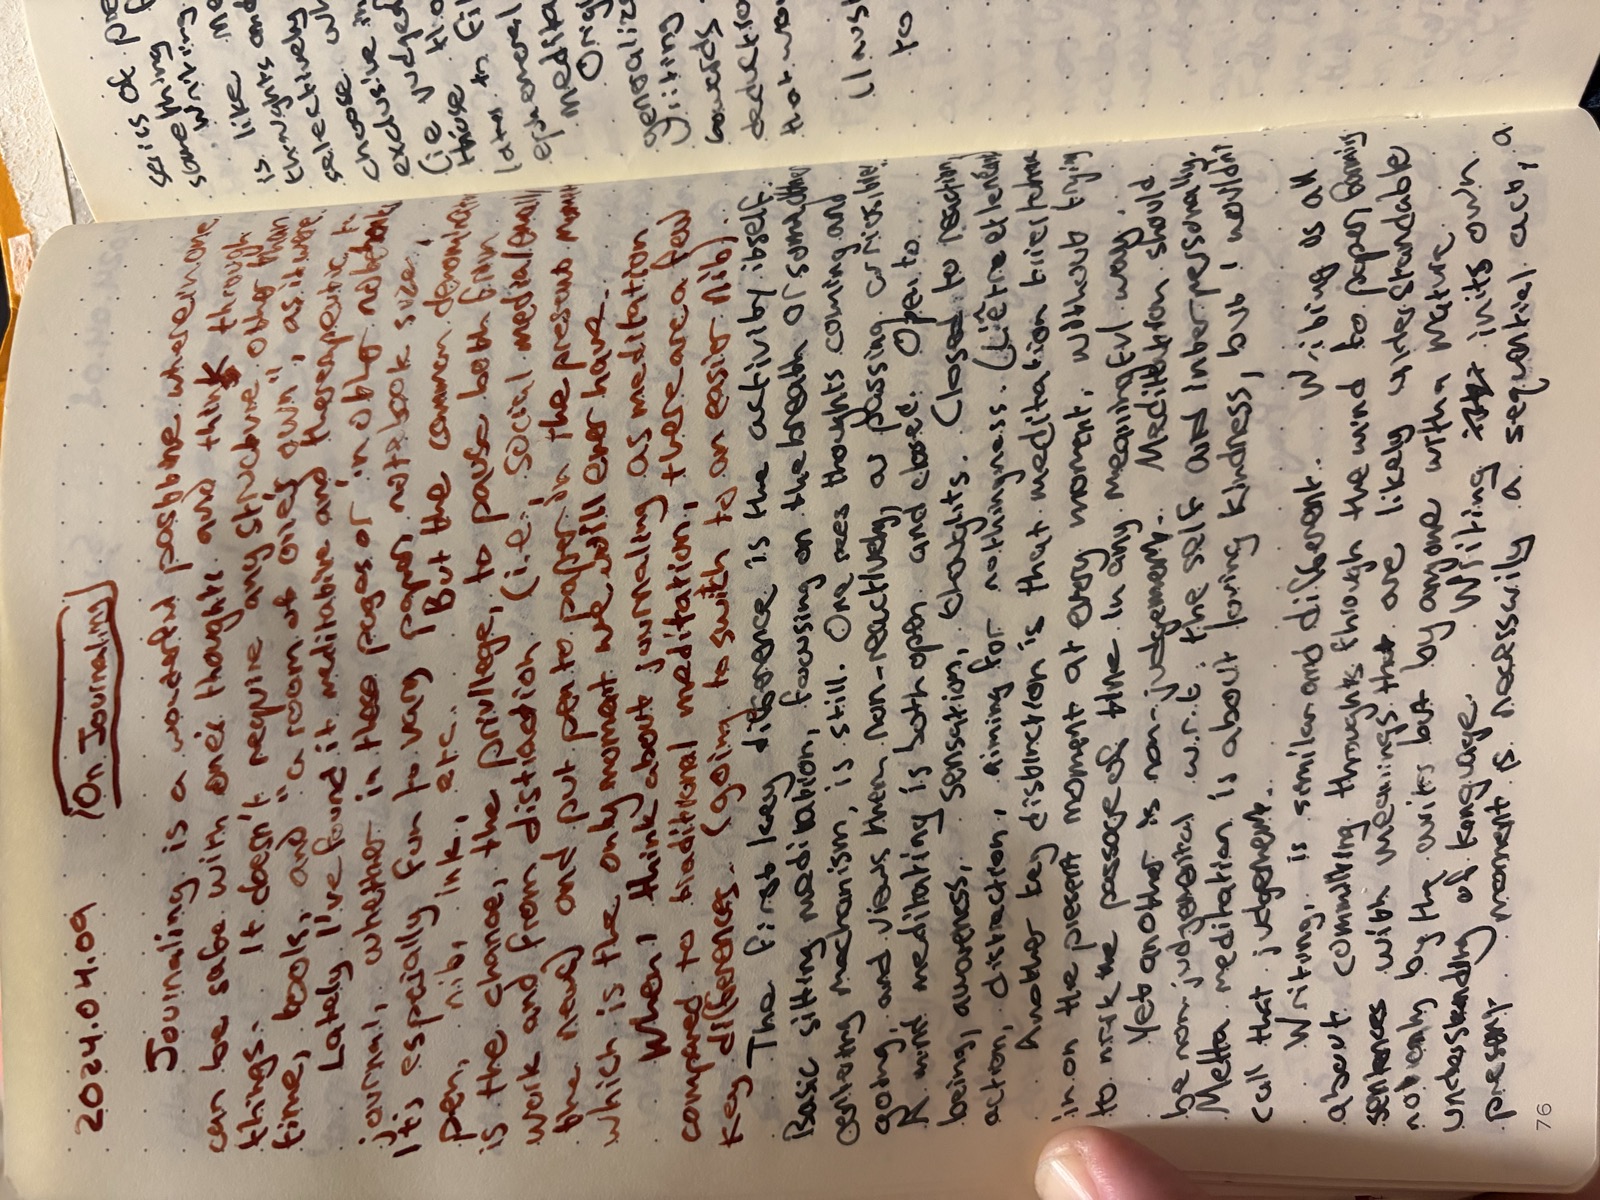 2024.04.09 On Journaling
Journaling is a wonderful pastime wherein one
can be safe with one's thoughts and think through
things. It doesn't require any structure other than
time, tools, and "a room of one's own", as it were.
Lately I've found it meditative and therapeutic to
journal, whether in these pages or in other notebooks
It's especially fun to vary paper, notebook size,
pen, nib, ink, etc. But the common denominator
is the chance, the privilege, to pause both from
work and from distraction (i.e. social media/email/
the news) and put pen to paper in the present moment
which is the only moment we will ever have.
When I think about journaling as meditation
compared to traditional meditation, there are a few
key differences. (going to switch to an easier nib).
The first key difference is the activity itself.
Basic sitting meditation, focusing on the breath or sound other
centering mechanism, is still. One sees thoughts coming and
going, and views them non-reactively, as passing
A mind meditating is both open and closed. Open to
being, awareness, sensation, thoughts. Closed to reaction
action, distraction, aiming for nothingness.
Another key distinction is that meditation tries to be
in or the present moment at every moment, without trying
to mark the passage of time in any meaningful way.
Yet another is non-judgement. Meditation should
be non-judgmental w.r.t. the self and interpersonally.
Metta meditation is about loving kindness, but I wouldn't
call that judgement.
Writing, is similar and different. Writing is all
about committing thoughts through the mind to paper, forming
sentences with meanings that are likely understandable
not only by the writer but by anyone with a mature
understanding of language. Writing in its own
present moment is necessarily a sequential act, a
76
series of
something
some writing
like me
is thoughts and
selectively
choose wh
exclusive in
(ie judged
those
later to fil
ephemeral
medita
Orig
generaliz
Writing
towards
deductio
that wo
must
to